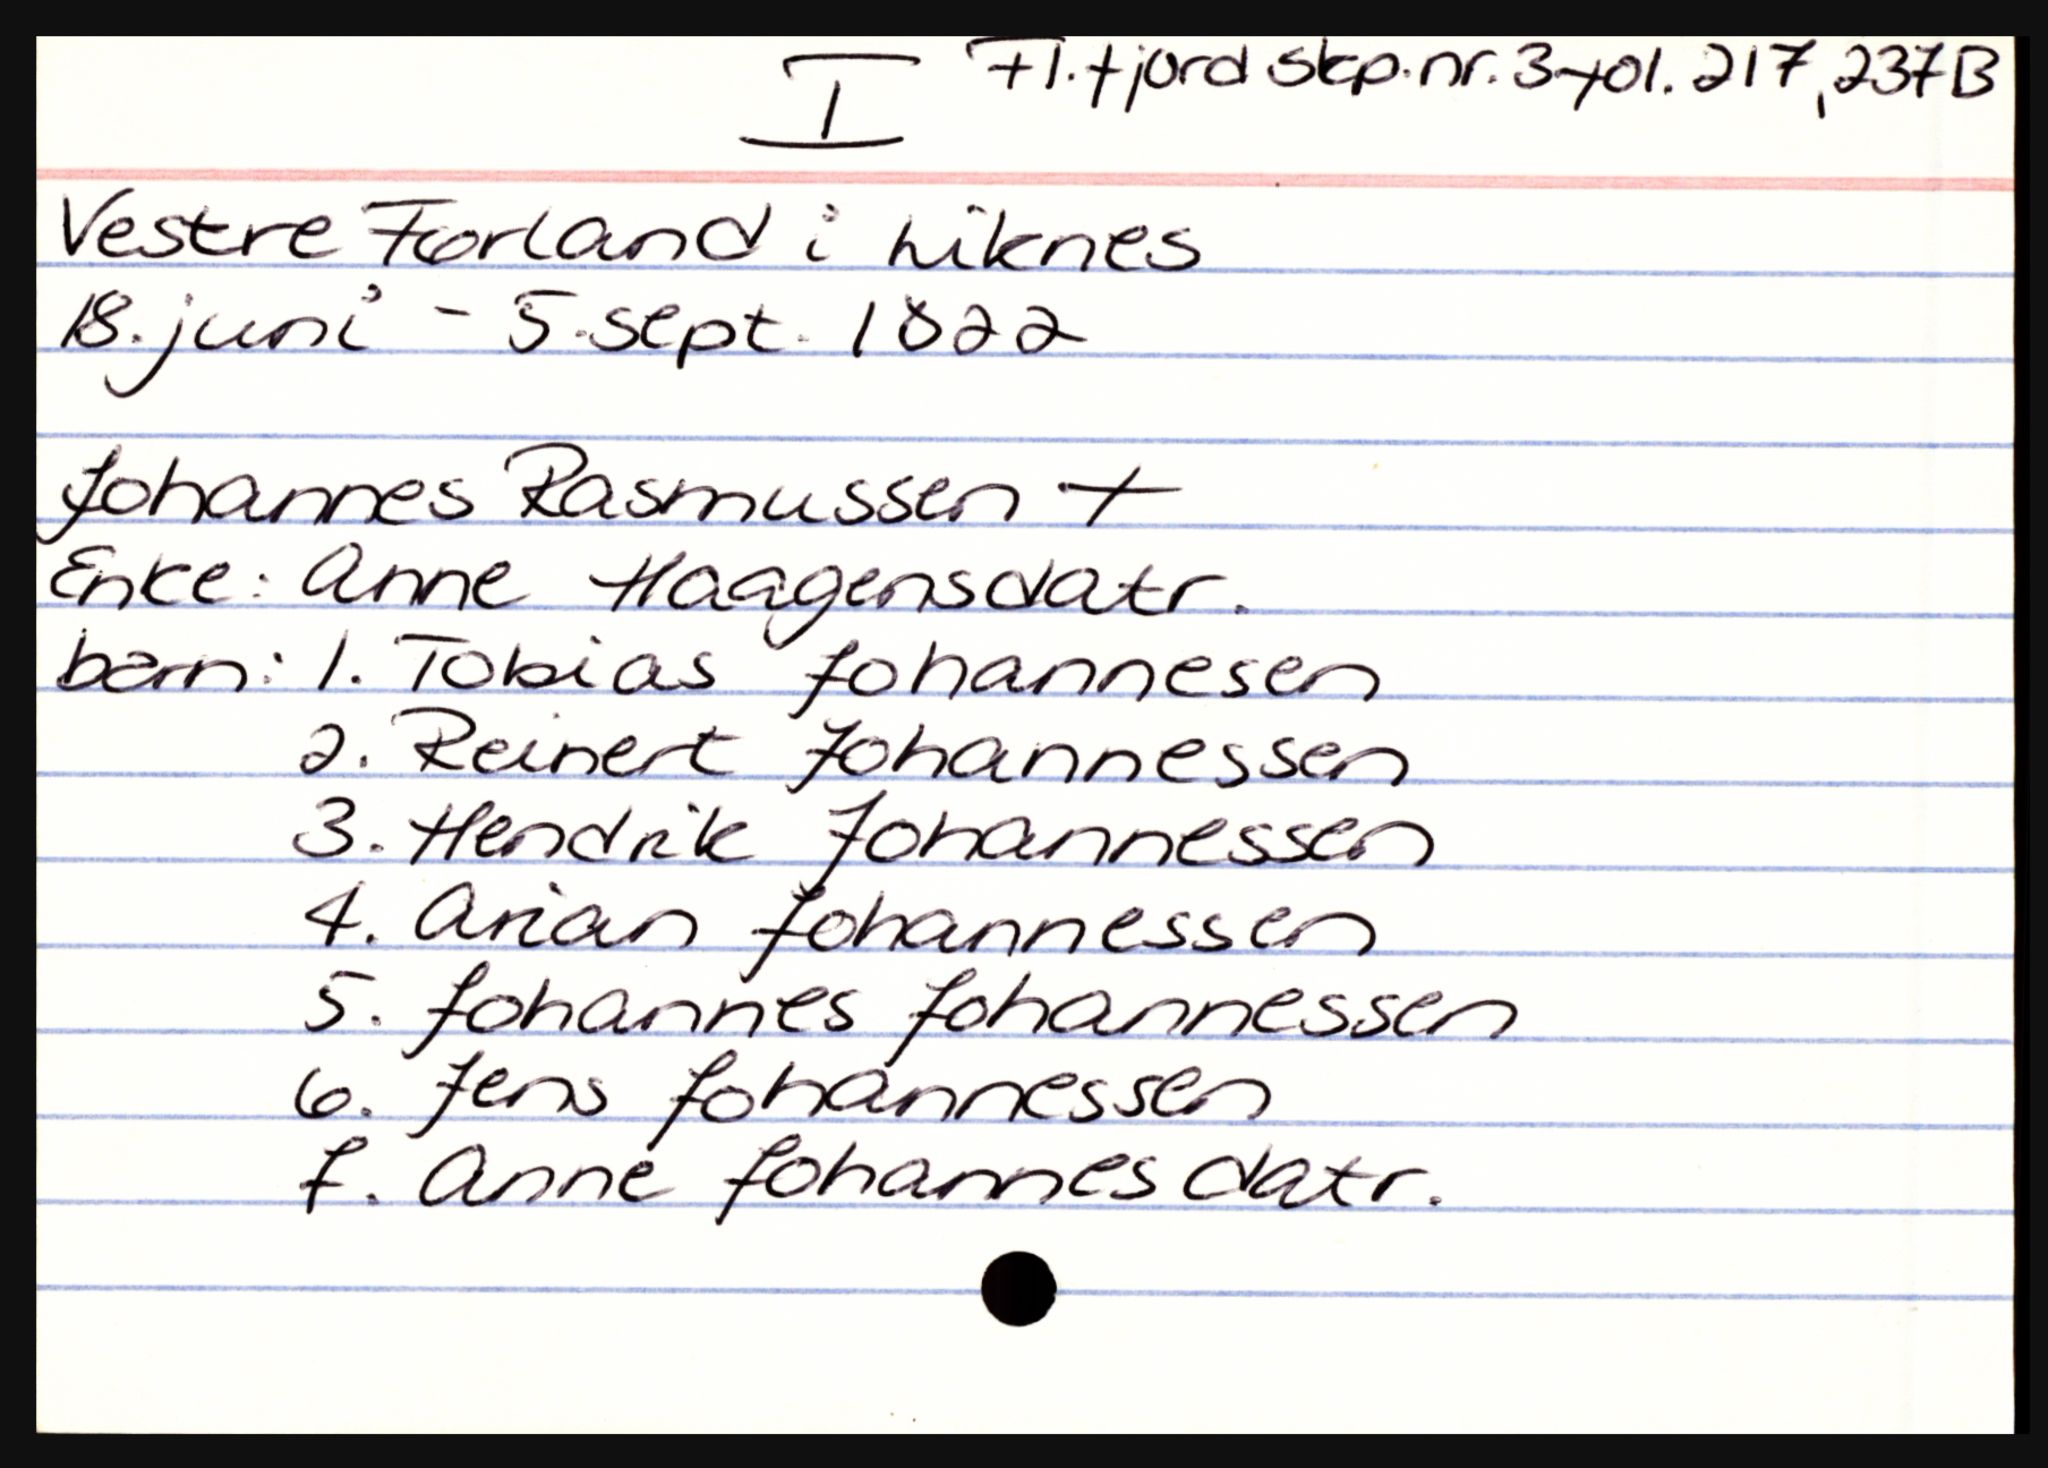 I Fl.fjord skp.nr. 3 fol. 217, 237B
Vestre Førland i Liknes
18. juni - 5. sept. 1822
Johannes Rasmussen +
Enke: Anne Haagensdatr.
barn: 1. Tobias Johannesen
2. Reinert Johannessen
3. Hendrik Johannessen
4. Arian Johannessen
5. Johannes Johannessen
6. Jens Johannessen
7. Anne Johannesdatr.